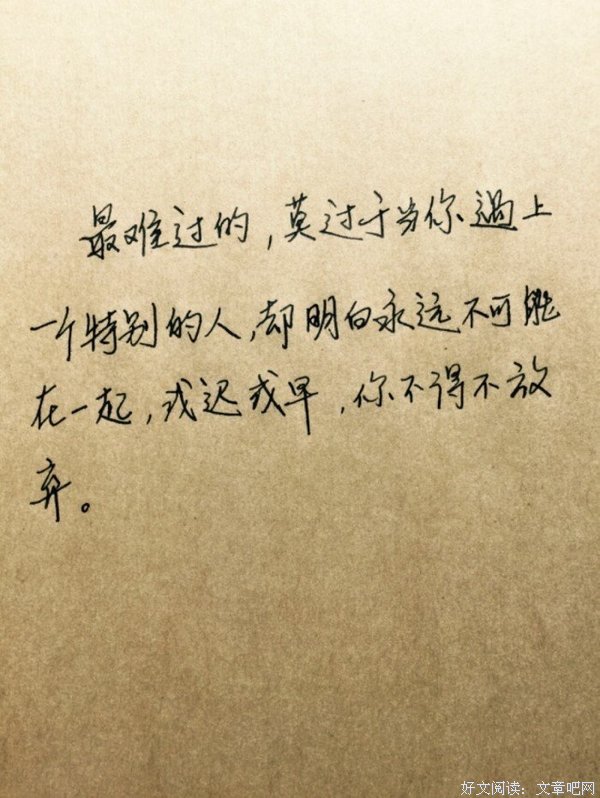 最难过的，莫过于当你遇上
一个特别的人，却明白永远不可能
在一起，或迟或早，你不得不放
弃。
好文阅读：文章吧网